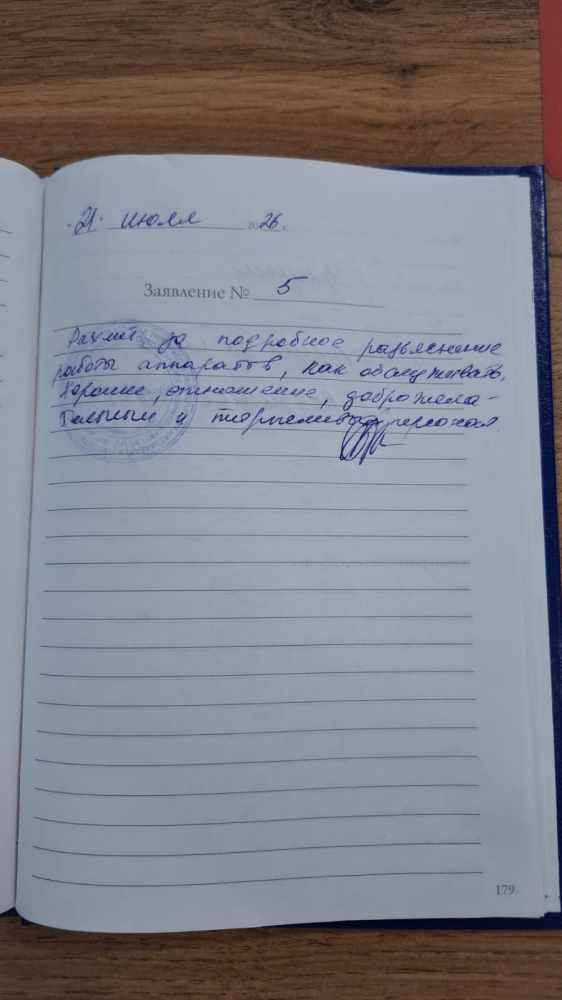 21. июля 2026 г.
Заявление № 5
Рахмет за подробное разъяснение
работы аппаратов, как обслуживать,
хорошие, отношение, доброжела-
тельный и терпеливый персонал
179